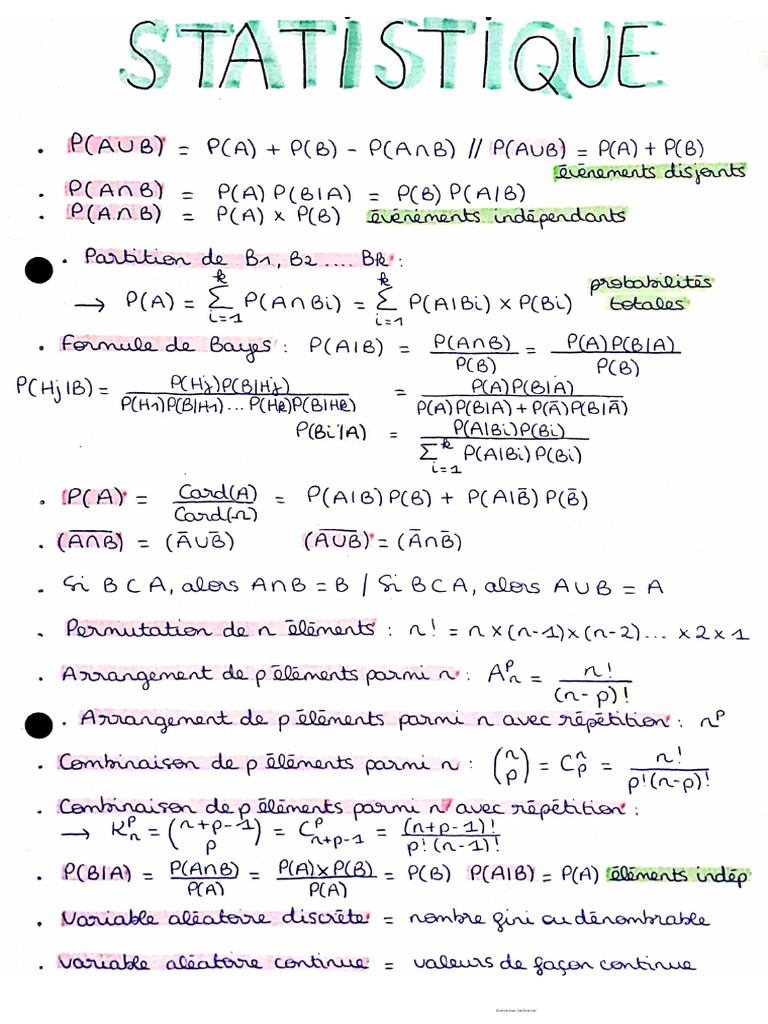 STATISTIQUE
. P(A∪B) = P(A) + P(B) - P(A∩B) // P(A∪B) = P(A) + P(B)
évènements disjoints
. P(A∩B) = P(A) P(B|A) = P(B) P(A|B)
. P(A∩B) = P(A) × P(B) évènements indépendants
. Partition de B1, B2 .... Bk :
→ P(A) = ∑_{i=1}^{k} P(A∩Bi) = ∑_{i=1}^{k} P(A|Bi) × P(Bi) probabilités totales
. Formule de Bayes : P(A|B) = P(A∩B)/P(B) = P(A)P(B|A)/P(B)
P(Hj|B) = P(Hj)P(B|Hj)/P(H1)P(B|H1)...P(Hk)P(B|Hk) = P(A)P(B|A)/P(A)P(B|A)+P(Ā)P(B|Ā)
P(Bi|A) = P(A|Bi)P(Bi)/∑_{i=1}^{k} P(A|Bi)P(Bi)
. P(A) = Card(A)/Card(Ω) = P(A|B)P(B) + P(A|B̄)P(B̄)
. (A̅∩̅B̅) = (Ā∪B̄) (A̅∪̅B̅) = (Ā∩B̄)
. Si B⊂A, alors A∩B = B / Si B⊂A, alors A∪B = A
. Permutation de n éléments : n! = n×(n-1)×(n-2)... ×2×1
. Arrangement de p éléments parmi n : A^p_n = n!/(n-p)!
. Arrangement de p éléments parmi n avec répétition : n^p
. Combinaison de p éléments parmi n : (n p) = C^n_p = n!/p!(n-p)!
. Combinaison de p éléments parmi n avec répétition :
→ K^p_n = (n+p-1 p) = C^p_{n+p-1} = (n+p-1)!/p!(n-1)!
. P(B|A) = P(A∩B)/P(A) = P(A)×P(B)/P(A) = P(B) P(A|B) = P(A) éléments indép
. Variable aléatoire discrète = nombre fini ou dénombrable
. Variable aléatoire continue = valeurs de façon continue